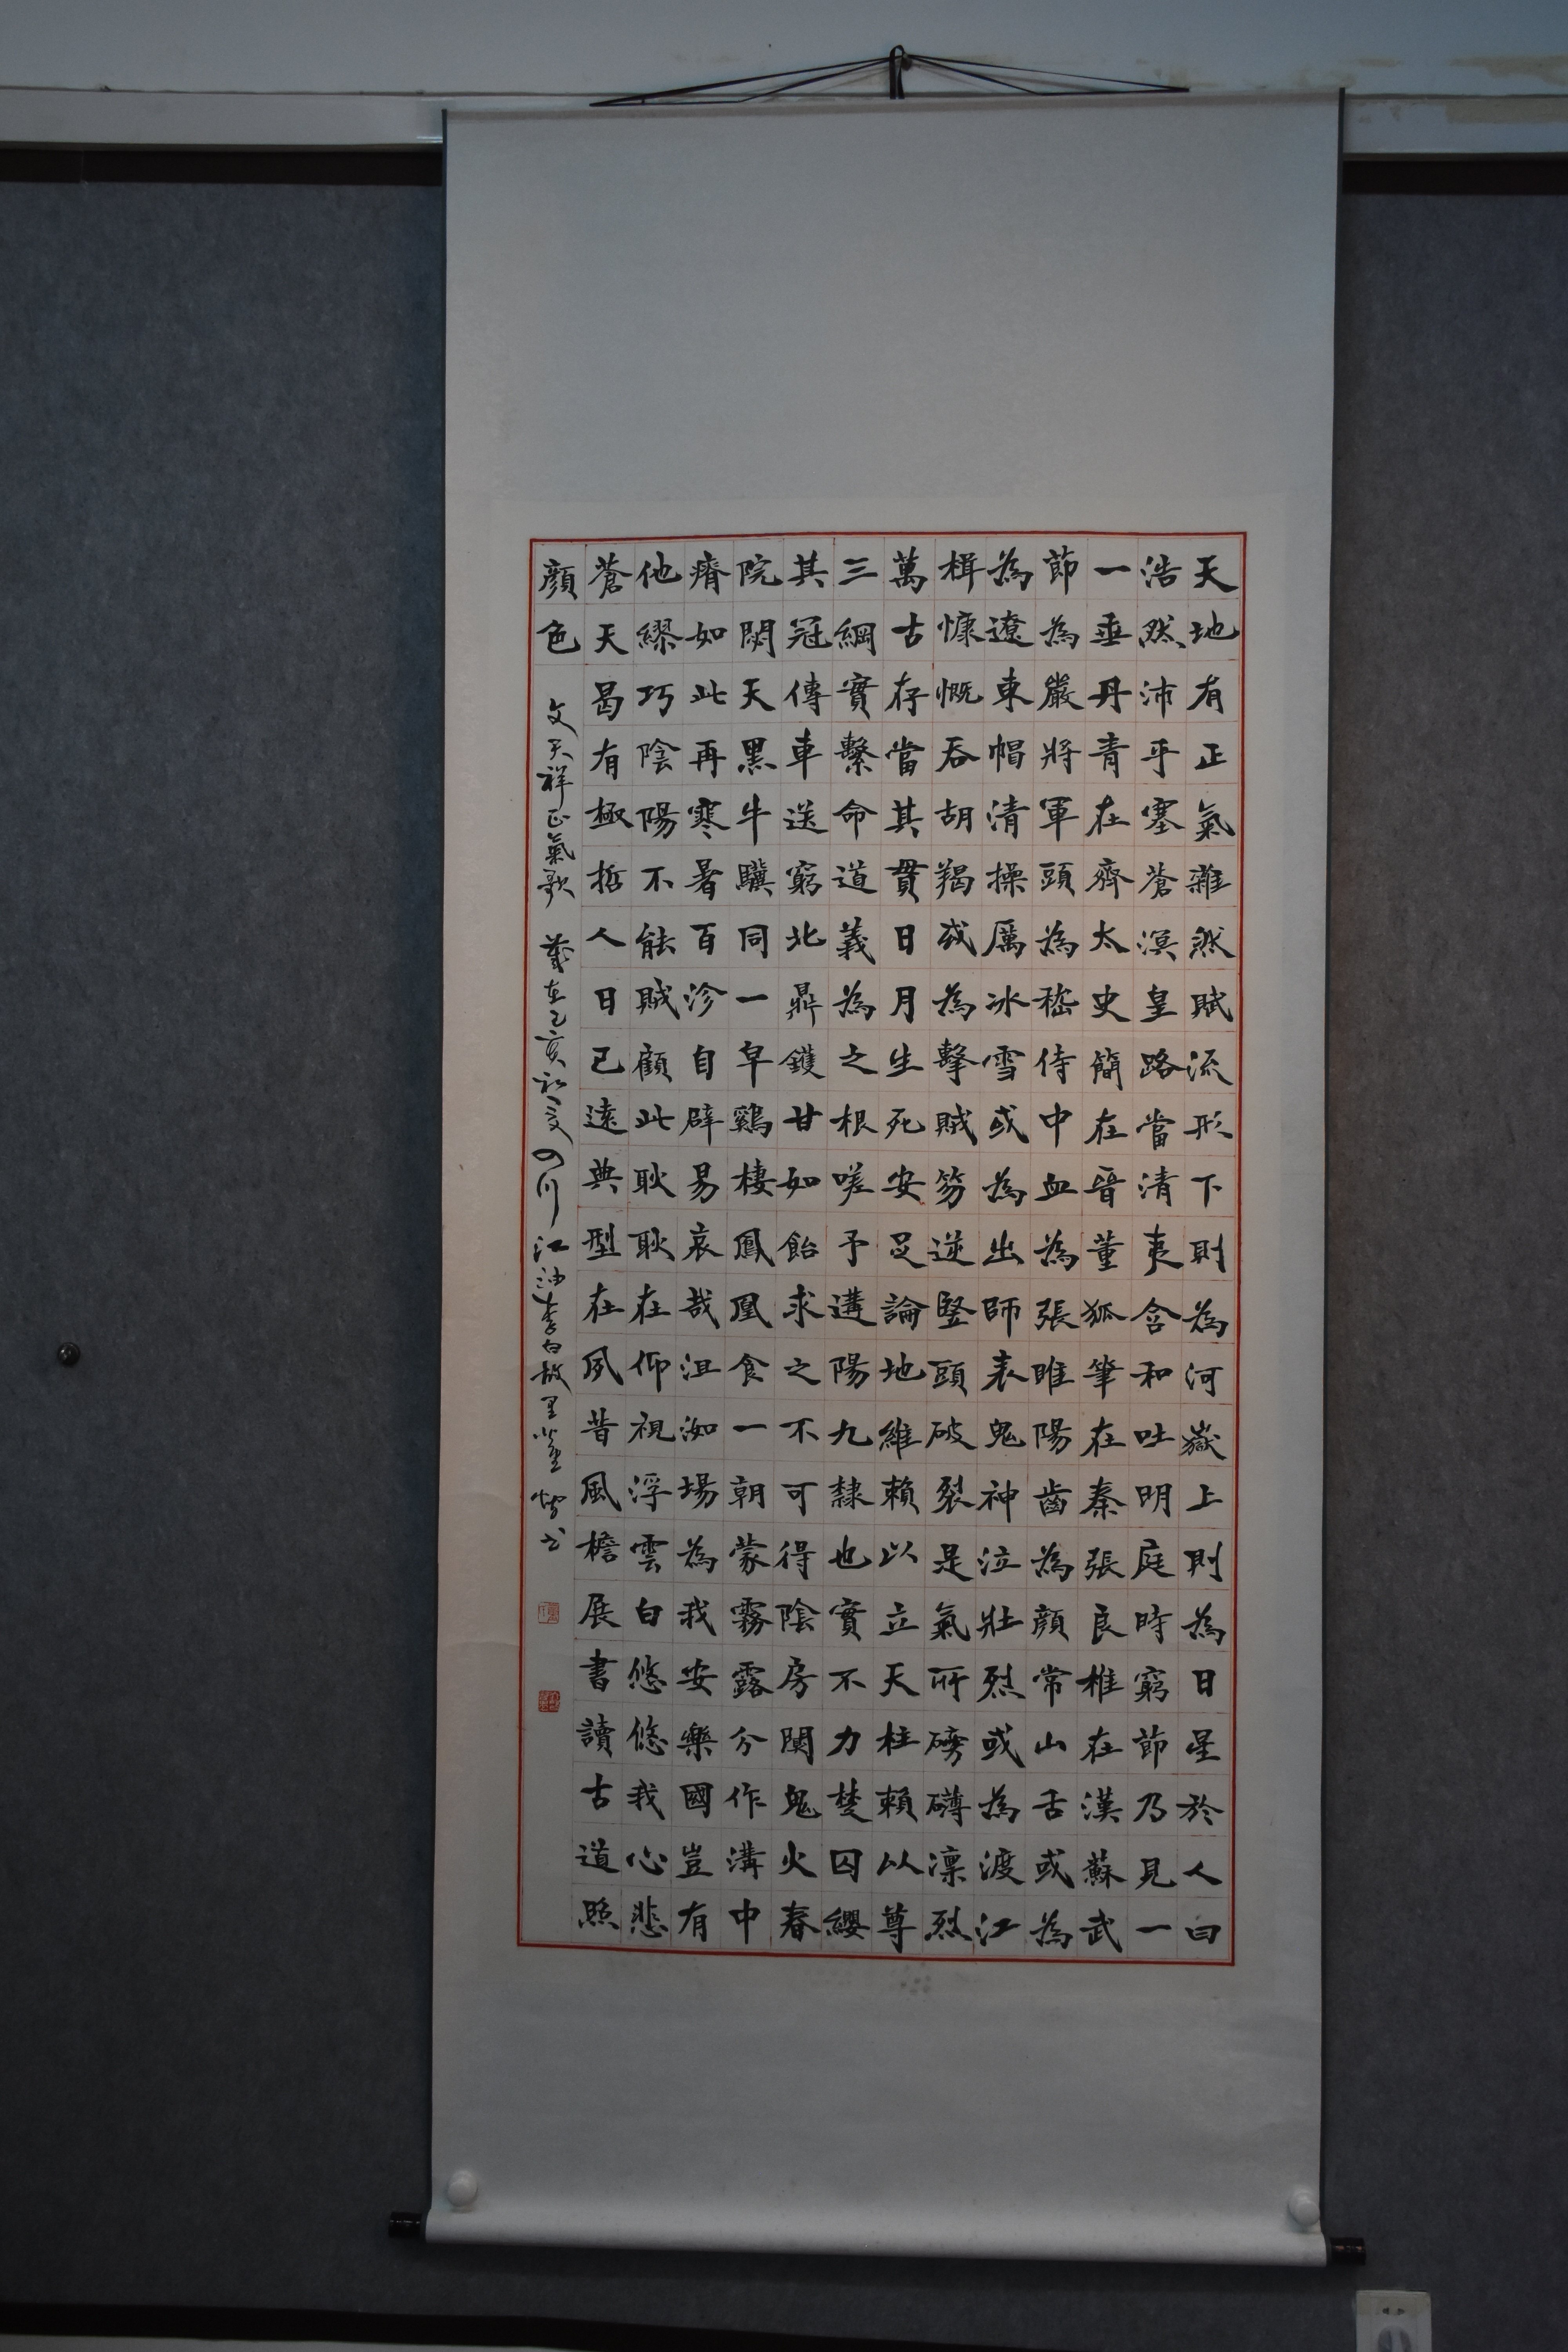 天地有正氣雜然賦流形下則為河嶽上則為日星於人曰
浩然沛乎塞蒼溟皇路當清夷含和吐明庭時窮節乃見一
一垂丹青在齊太史簡在晉董狐筆在秦張良椎在漢蘇武
節為嚴將軍頭為嵇侍中血為張睢陽齒為顏常山舌或為
為遼東帽清操厲冰雪或為出師表鬼神泣壯烈或為渡江
楫慷慨吞胡羯或為擊賊笏逆豎頭破裂是氣所磅礴凜烈
萬古存當其貫日月生死安足論地維賴以立天柱賴以尊
三綱實繫命道義為之根嗟予遘陽九隸也實不力楚囚纓
其冠傳車送窮北鼎鑊甘如飴求之不可得陰房闃鬼火春
院閟天黑牛驥同一皁鷄棲鳳凰食一朝蒙霧露分作溝中
瘠如此再寒暑百沴自辟易哀哉沮洳場為我安樂國豈有
他繆巧陰陽不能賊顧此耿耿在仰視浮雲白悠悠我心悲
蒼天曷有極哲人日已遠典型在夙昔風檐展書讀古道照
顏色
文天祥正氣歌 歲在乙亥初夏四川江油李白故里 書